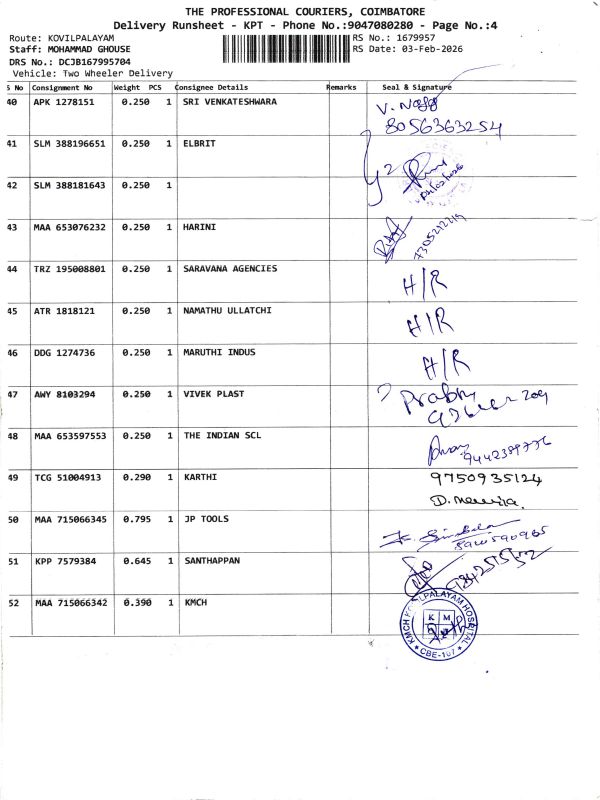 THE PROFESSIONAL COURIERS, COIMBATORE
Delivery Runsheet - KPT - Phone No.:9047080280 - Page No.:4
Route: KOVILPALAYAM
RS No.: 1679957
Staff: MOHAMMAD GHOUSE
RS Date: 03-Feb-2026
DRS No.: DCJB167995704
Vehicle: Two Wheeler Delivery
S No Consignment No Weight PCS Consignee Details Remarks Seal & Signature
40 APK 1278151 0.250 1 SRI VENKATESHWARA
8056363254
41 SLM 388196651 0.250 1 ELBRIT
42 SLM 388181643 0.250 1
43 MAA 653076232 0.250 1 HARINI
44 TRZ 195008801 0.250 1 SARAVANA AGENCIES H/R
45 ATR 1818121 0.250 1 NAMATHU ULLATCHI H/R
46 DDG 1274736 0.250 1 MARUTHI INDUS H/R
47 AWY 8103294 0.250 1 VIVEK PLAST Prabhu
48 MAA 653597553 0.250 1 THE INDIAN SCL
49 TCG 51004913 0.290 1 KARTHI 9750935124
50 MAA 715066345 0.795 1 JP TOOLS
51 KPP 7579384 0.645 1 SANTHAPPAN
52 MAA 715066342 0.390 1 KMCH
KMCH KOVILPALAYAM HOSPITAL
K M
CBE-107